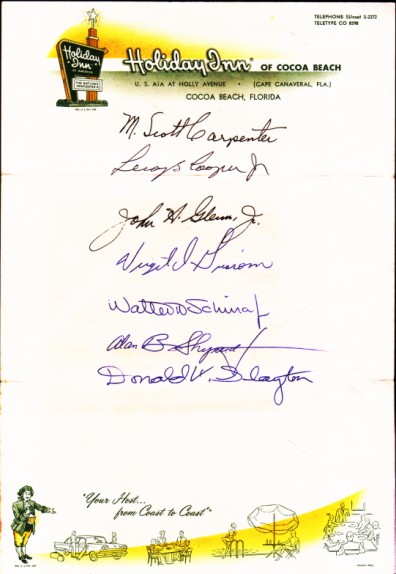 TELEPHONE SUnset 3-2272
TELETYPE CO 8398
Holiday Inn
OF AMERICA
Holiday Inn OF COCOA BEACH
U. S. A1A AT HOLLY AVENUE • (CAPE CANAVERAL, FLA.)
COCOA BEACH, FLORIDA
M. Scott Carpenter
Leroy G Cooper Jr
John H. Glenn, Jr.
Virgil I Grissom
Walter M Schirra Jr
Alan B Shepard Jr
Donald K. Slayton
"Your Host...
from Coast to Coast"